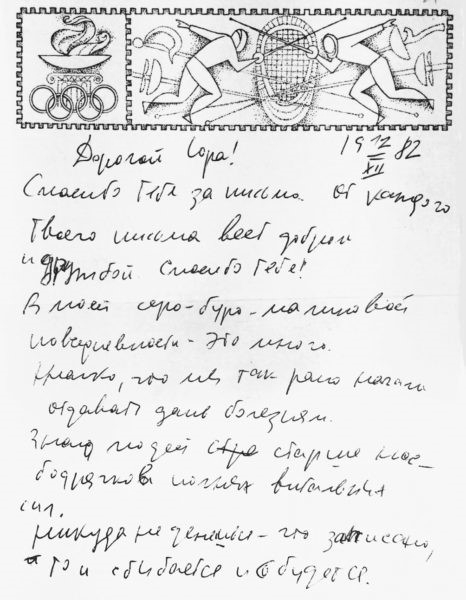 Дорогой Юра! 19 12/XII 82
Спасибо Тебе за письма. От каждого
Твоего письма веет добром
и дружбой. Спасибо Тебе!
В моей серо-буро-малиновой
повседневности - это много.
Жалко, что мы так рано начали
отдавать дань болезням.
Знаю людей стар старше нас -
бодрячков полных витальных
сил.
Никуда не денешься - что записано,
то и сбывается и сбудется.